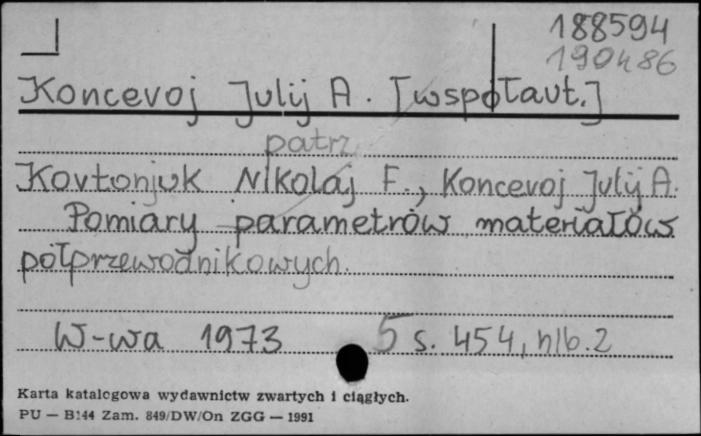 188594
190486
Koncevoj Julij A. [współaut.]
patrz
Kovtonjuk Nikolaj F., Koncevoj Julij A.
Pomiary parametrów materiałów
półprzewodnikowych.
W-wa 1973 5 s. 454, nlb. 2
Karta katalogowa wydawnictw zwartych i ciągłych.
PU — B144 Zam. 849/DW/On ZGG — 1991